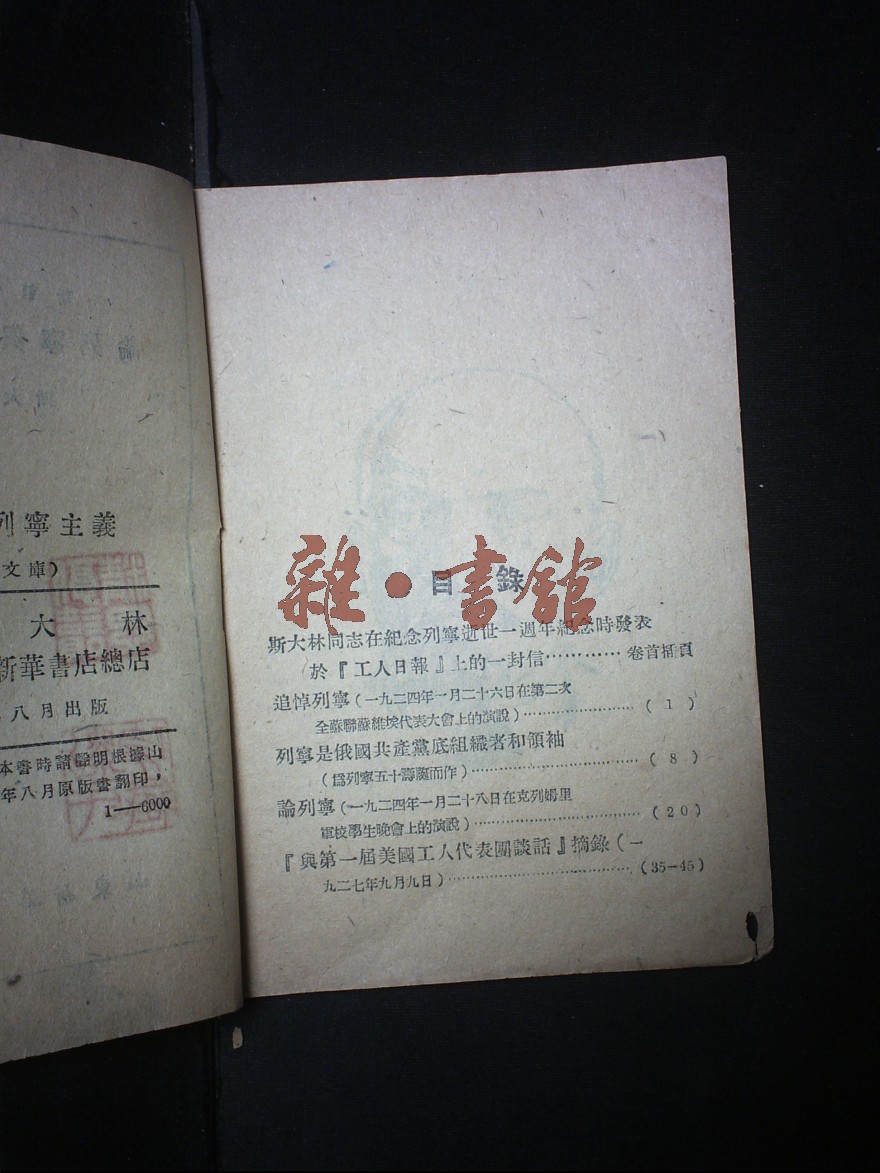 列寧主義
文庫）
大 林
新華書店總店
八月出版
本書時請聲明根據山
年八月原版書翻印，
1—6000
雜·書館
目 錄
斯大林同志在紀念列寧逝世一週年紀念時發表
於『工人日報』上的一封信…………卷首插頁
追悼列寧（一九二四年一月二十六日在第二次
全蘇聯蘇維埃代表大會上的演說）…………（1）
列寧是俄國共產黨底組織者和領袖
（爲列寧五十壽誕而作）…………（8）
論列寧（一九二四年一月二十八日在克列姆里
軍校學生晚會上的演說）…………（20）
『與第一屆美國工人代表團談話』摘錄（一
九二七年九月九日）…………（35—45）